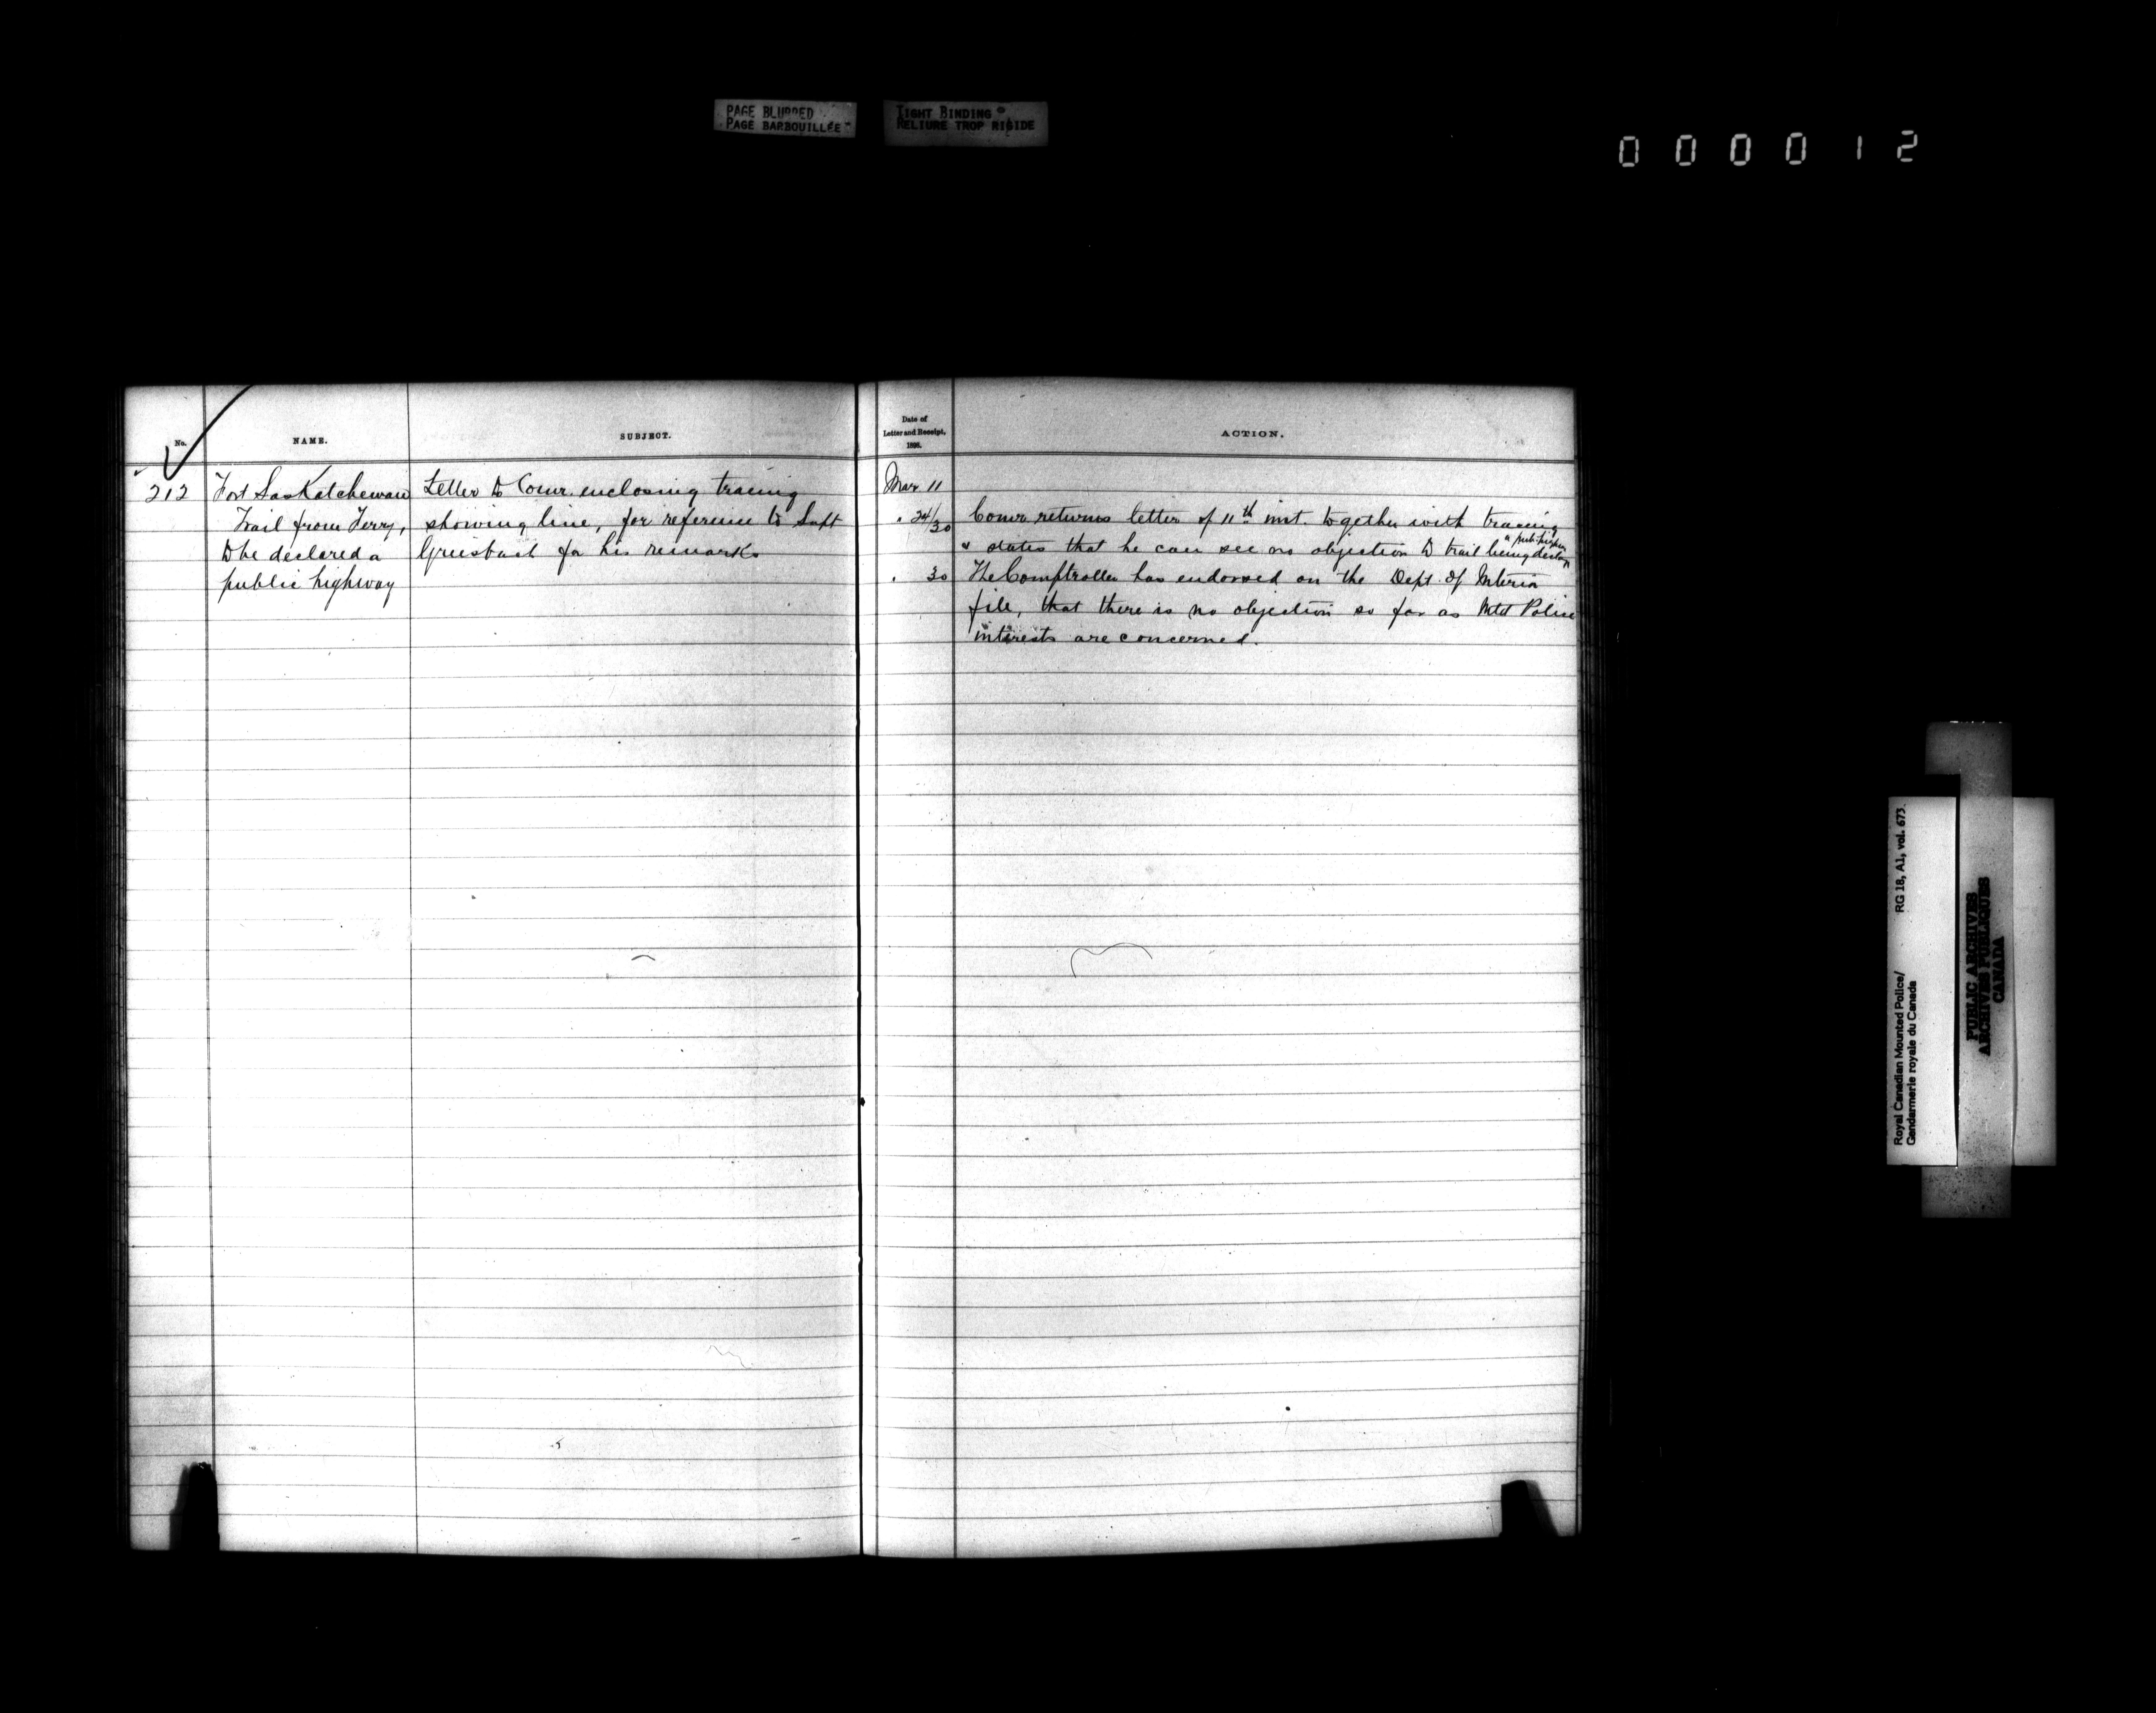 PAGE BLURRED
PAGE BARBOUILLÉE
TIGHT BINDING
RELIURE TROP RIGIDE
000012
No.
NAME.
SUBJECT.
Date of
Letter and Receipt,
1898.
ACTION.
212
Fort Saskatchewan
Trail from Ferry,
to be declared a
public highway
Letter to Comr. enclosing tracing
showing line, for reference to Supt
Griesbach for his remarks
Mar 11
" 24/30
Comr returns letter of 11th inst. together with tracing
& states that he can see no objection to trail being
" 30
The Comptroller has endorsed on the Dept. of Interior
file, that there is no objection so far as Mtd Police
interests are concerned.
Royal Canadian Mounted Police/
Gendarmerie royale du Canada
RG 18, A1, vol. 673.
PUBLIC ARCHIVES
ARCHIVES PUBLIQUES
CANADA